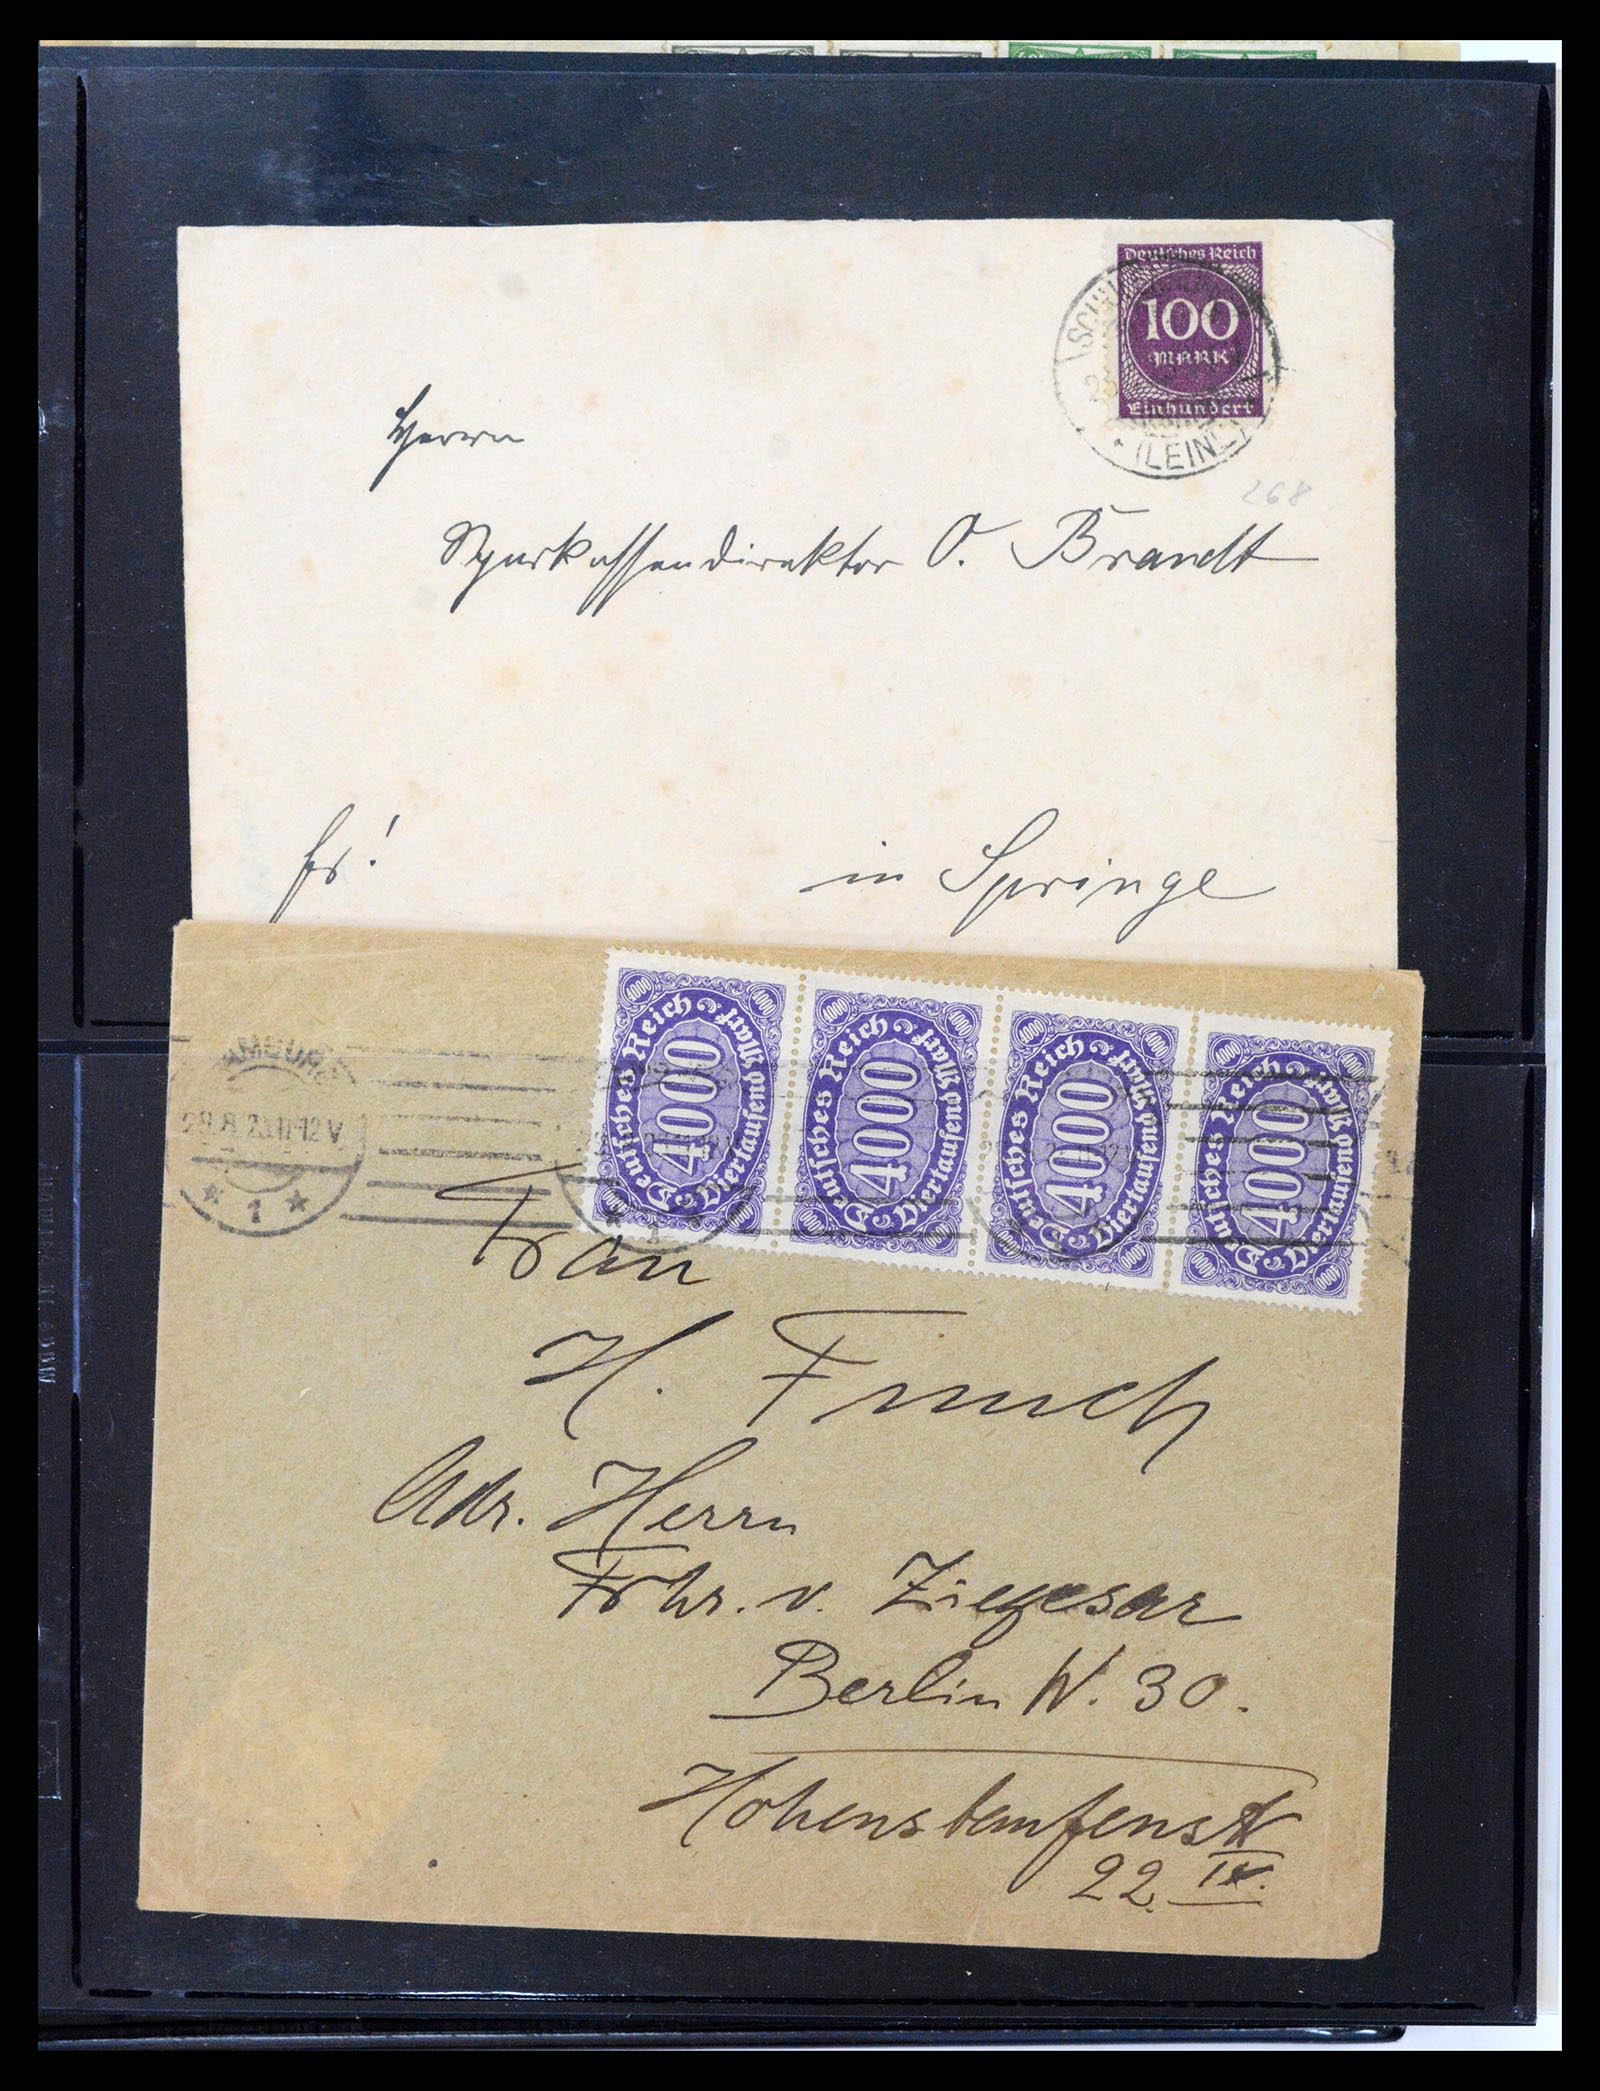 Deutsches Reich
100
MARK
Einhundert
(LEINE)
268
Herrn
Sparkassendirektor O. Brandt
fr!
in Springe
Deutsches Reich Viertausend Mark 4000
Deutsches Reich Viertausend Mark 4000
Deutsches Reich Viertausend Mark 4000
Deutsches Reich Viertausend Mark 4000
28.8.23.11-12 V
* 1 *
Frau
H.
Adr. Herrn
Frhr. v. Ziegesar
Berlin W. 30.
Hohenstaufenstr
22. IV.